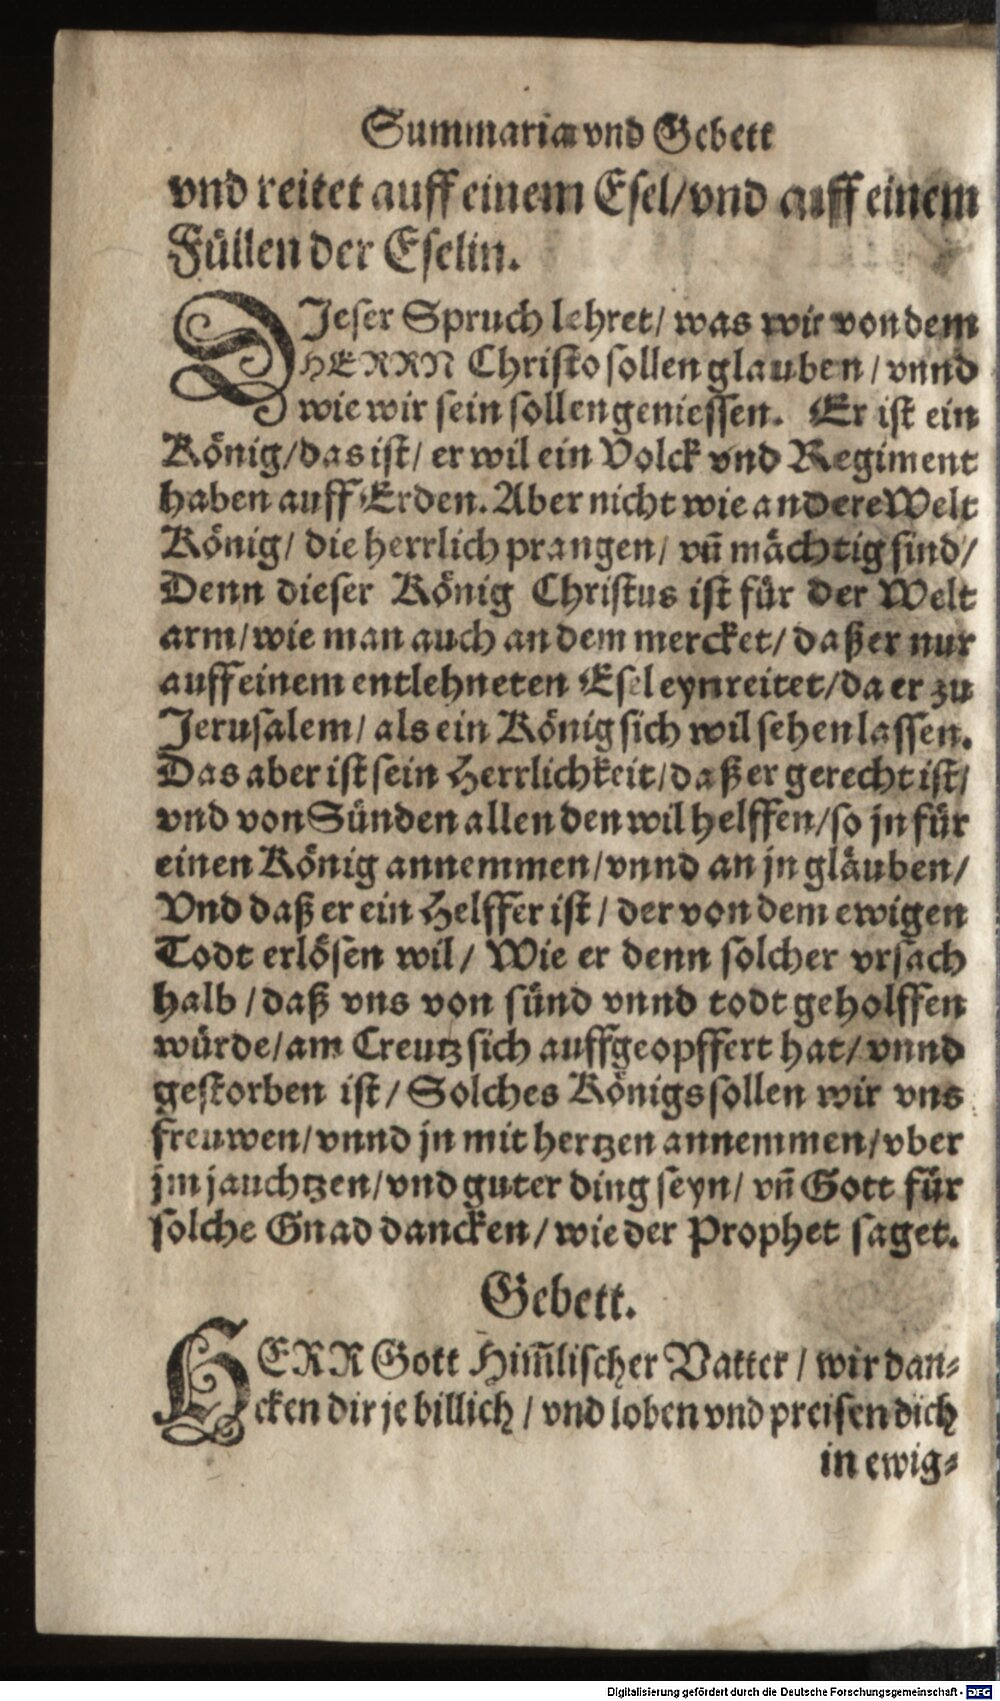 Summaria vnd Gebett
vnd reitet auff einem Esel/ vnd auff einem
Füllen der Eselin.
DJeser Spruch lehret/ was wir von dem
HERRN Christo sollen glauben / vnnd
wie wir sein sollen geniessen. Er ist ein
König/ das ist/ er wil ein Volck vnd Regiment
haben auff Erden. Aber nicht wie andere Welt
König/ die herrlich prangen/ vñ mächtig sind/
Denn dieser König Christus ist für der Welt
arm/ wie man auch an dem mercket/ daß er nur
auff einem entlehneten Esel eynreitet/ da er zu
Jerusalem/ als ein König sich wil sehen lassen.
Das aber ist sein Herrlichkeit/ daß er gerecht ist/
vnd von Sünden allen den wil helffen/ so jn für
einen König annemmen/ vnnd an jn gläuben/
Vnd daß er ein Helffer ist / der von dem ewigen
Todt erlösen wil/ Wie er denn solcher vrsach
halb / daß vns von sünd vnnd todt geholffen
würde/ am Creutz sich auffgeopffert hat/ vnnd
gestorben ist/ Solches Königs sollen wir vns
freuwen/ vnnd jn mit hertzen annemmen/ vber
jm jauchtzen/ vnd guter ding seyn/ vñ Gott für
solche Gnad dancken/ wie der Prophet saget.
Gebett.
HERR Gott Him̃lischer Vatter / wir dan⸗
cken dir je billich / vnd loben vnd preisen dich
in ewig⸗
Digitalisierung gefördert durch die Deutsche Forschungsgemeinschaft - DFG